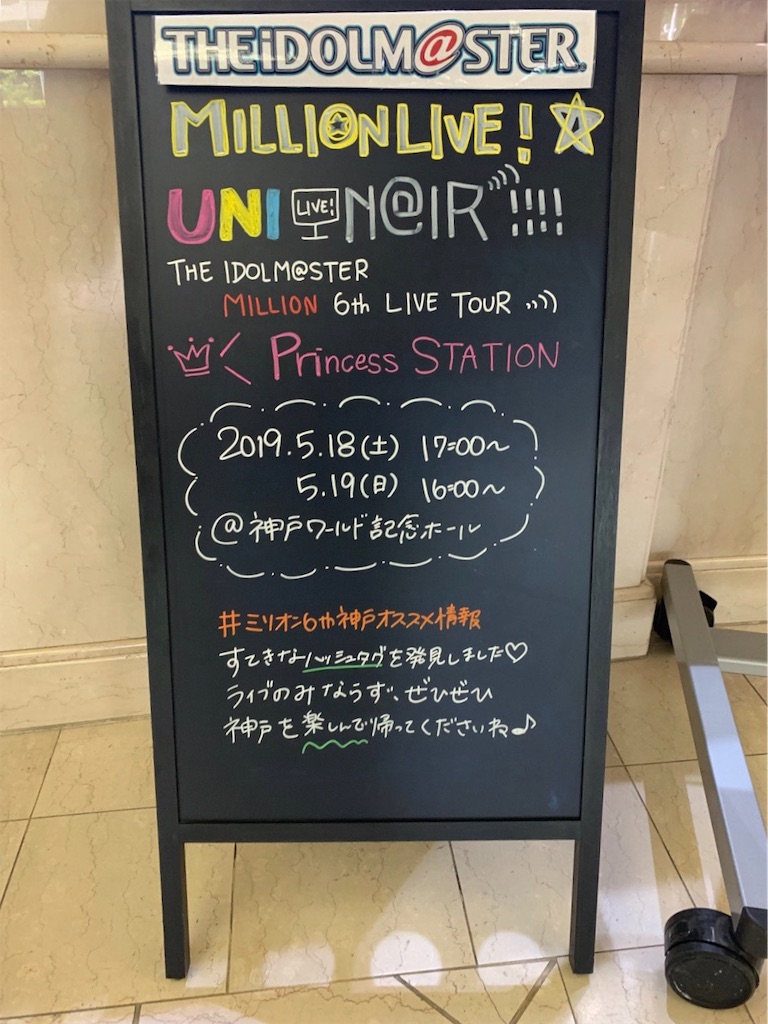 THE iDOLM@STER
MILLION LIVE!
UNI-ON@IR!!!!
LIVE!
THE IDOLM@STER
MILLION 6th LIVE TOUR
Princess STATION
2019.5.18(土) 17:00~
5.19(日) 16:00~
@神戸ワールド記念ホール
#ミリオン6th神戸オススメ情報
すてきなハッシュタグを発見しました♡
ライブのみならず、ぜひぜひ
神戸を楽しんで帰ってくださいね♪